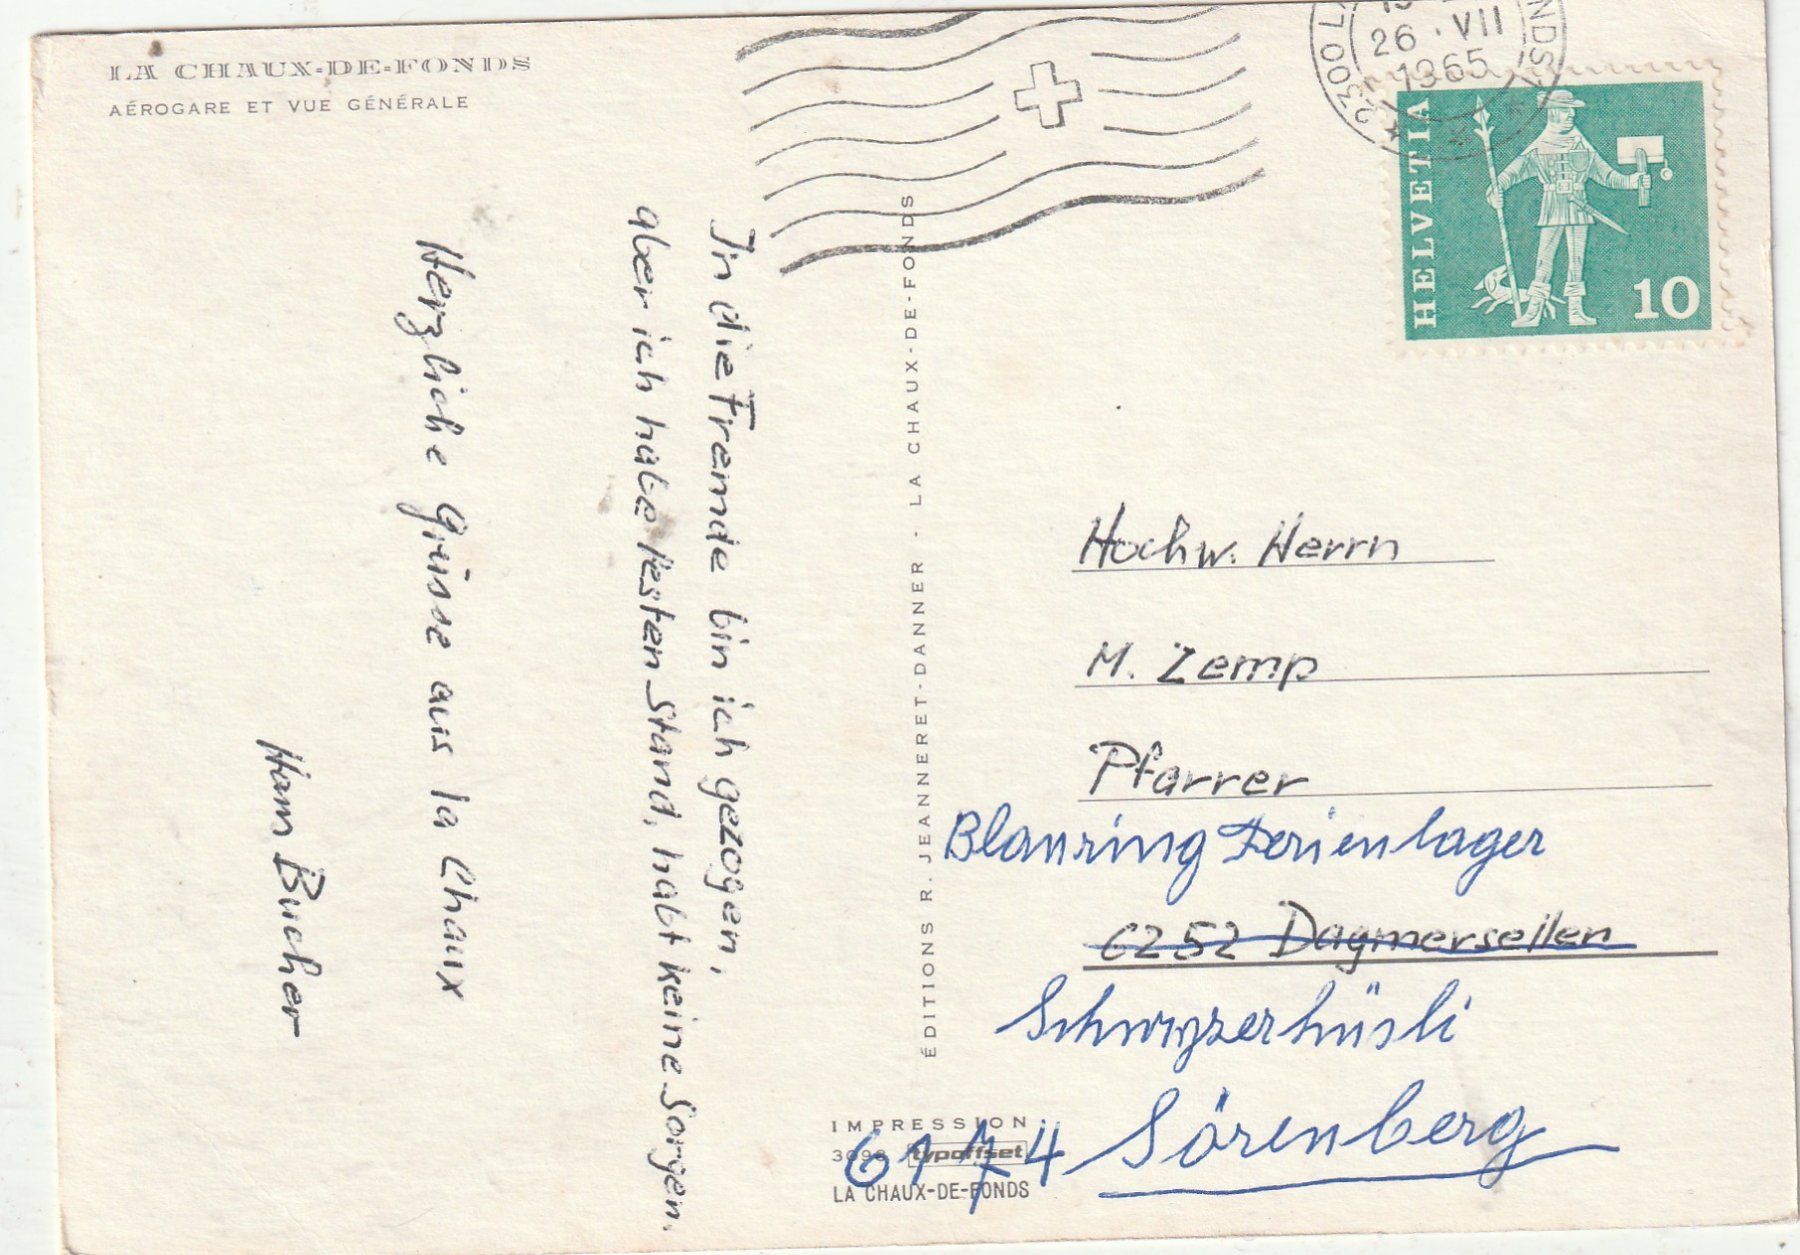 LA CHAUX-DE-FONDS
AÉROGARE ET VUE GÉNÉRALE
26.VII
1965
2300 L
NDS
HELVETIA
10
In die Fremde bin ich gezogen,
aber ich habe festen Stand, habt keine Sorgen.
Herzliche Grüsse aus la Chaux
Hans Bucher
ÉDITIONS R. JEANNERET-DANNER - LA CHAUX-DE-FONDS
Hochw. Herrn
M. Zemp
Pfarrer
Blauring Ferienlager
6252 Dagmersellen
Schwyzerhüsli
6174 Sörenberg
IMPRESSION
typoffset
LA CHAUX-DE-FONDS